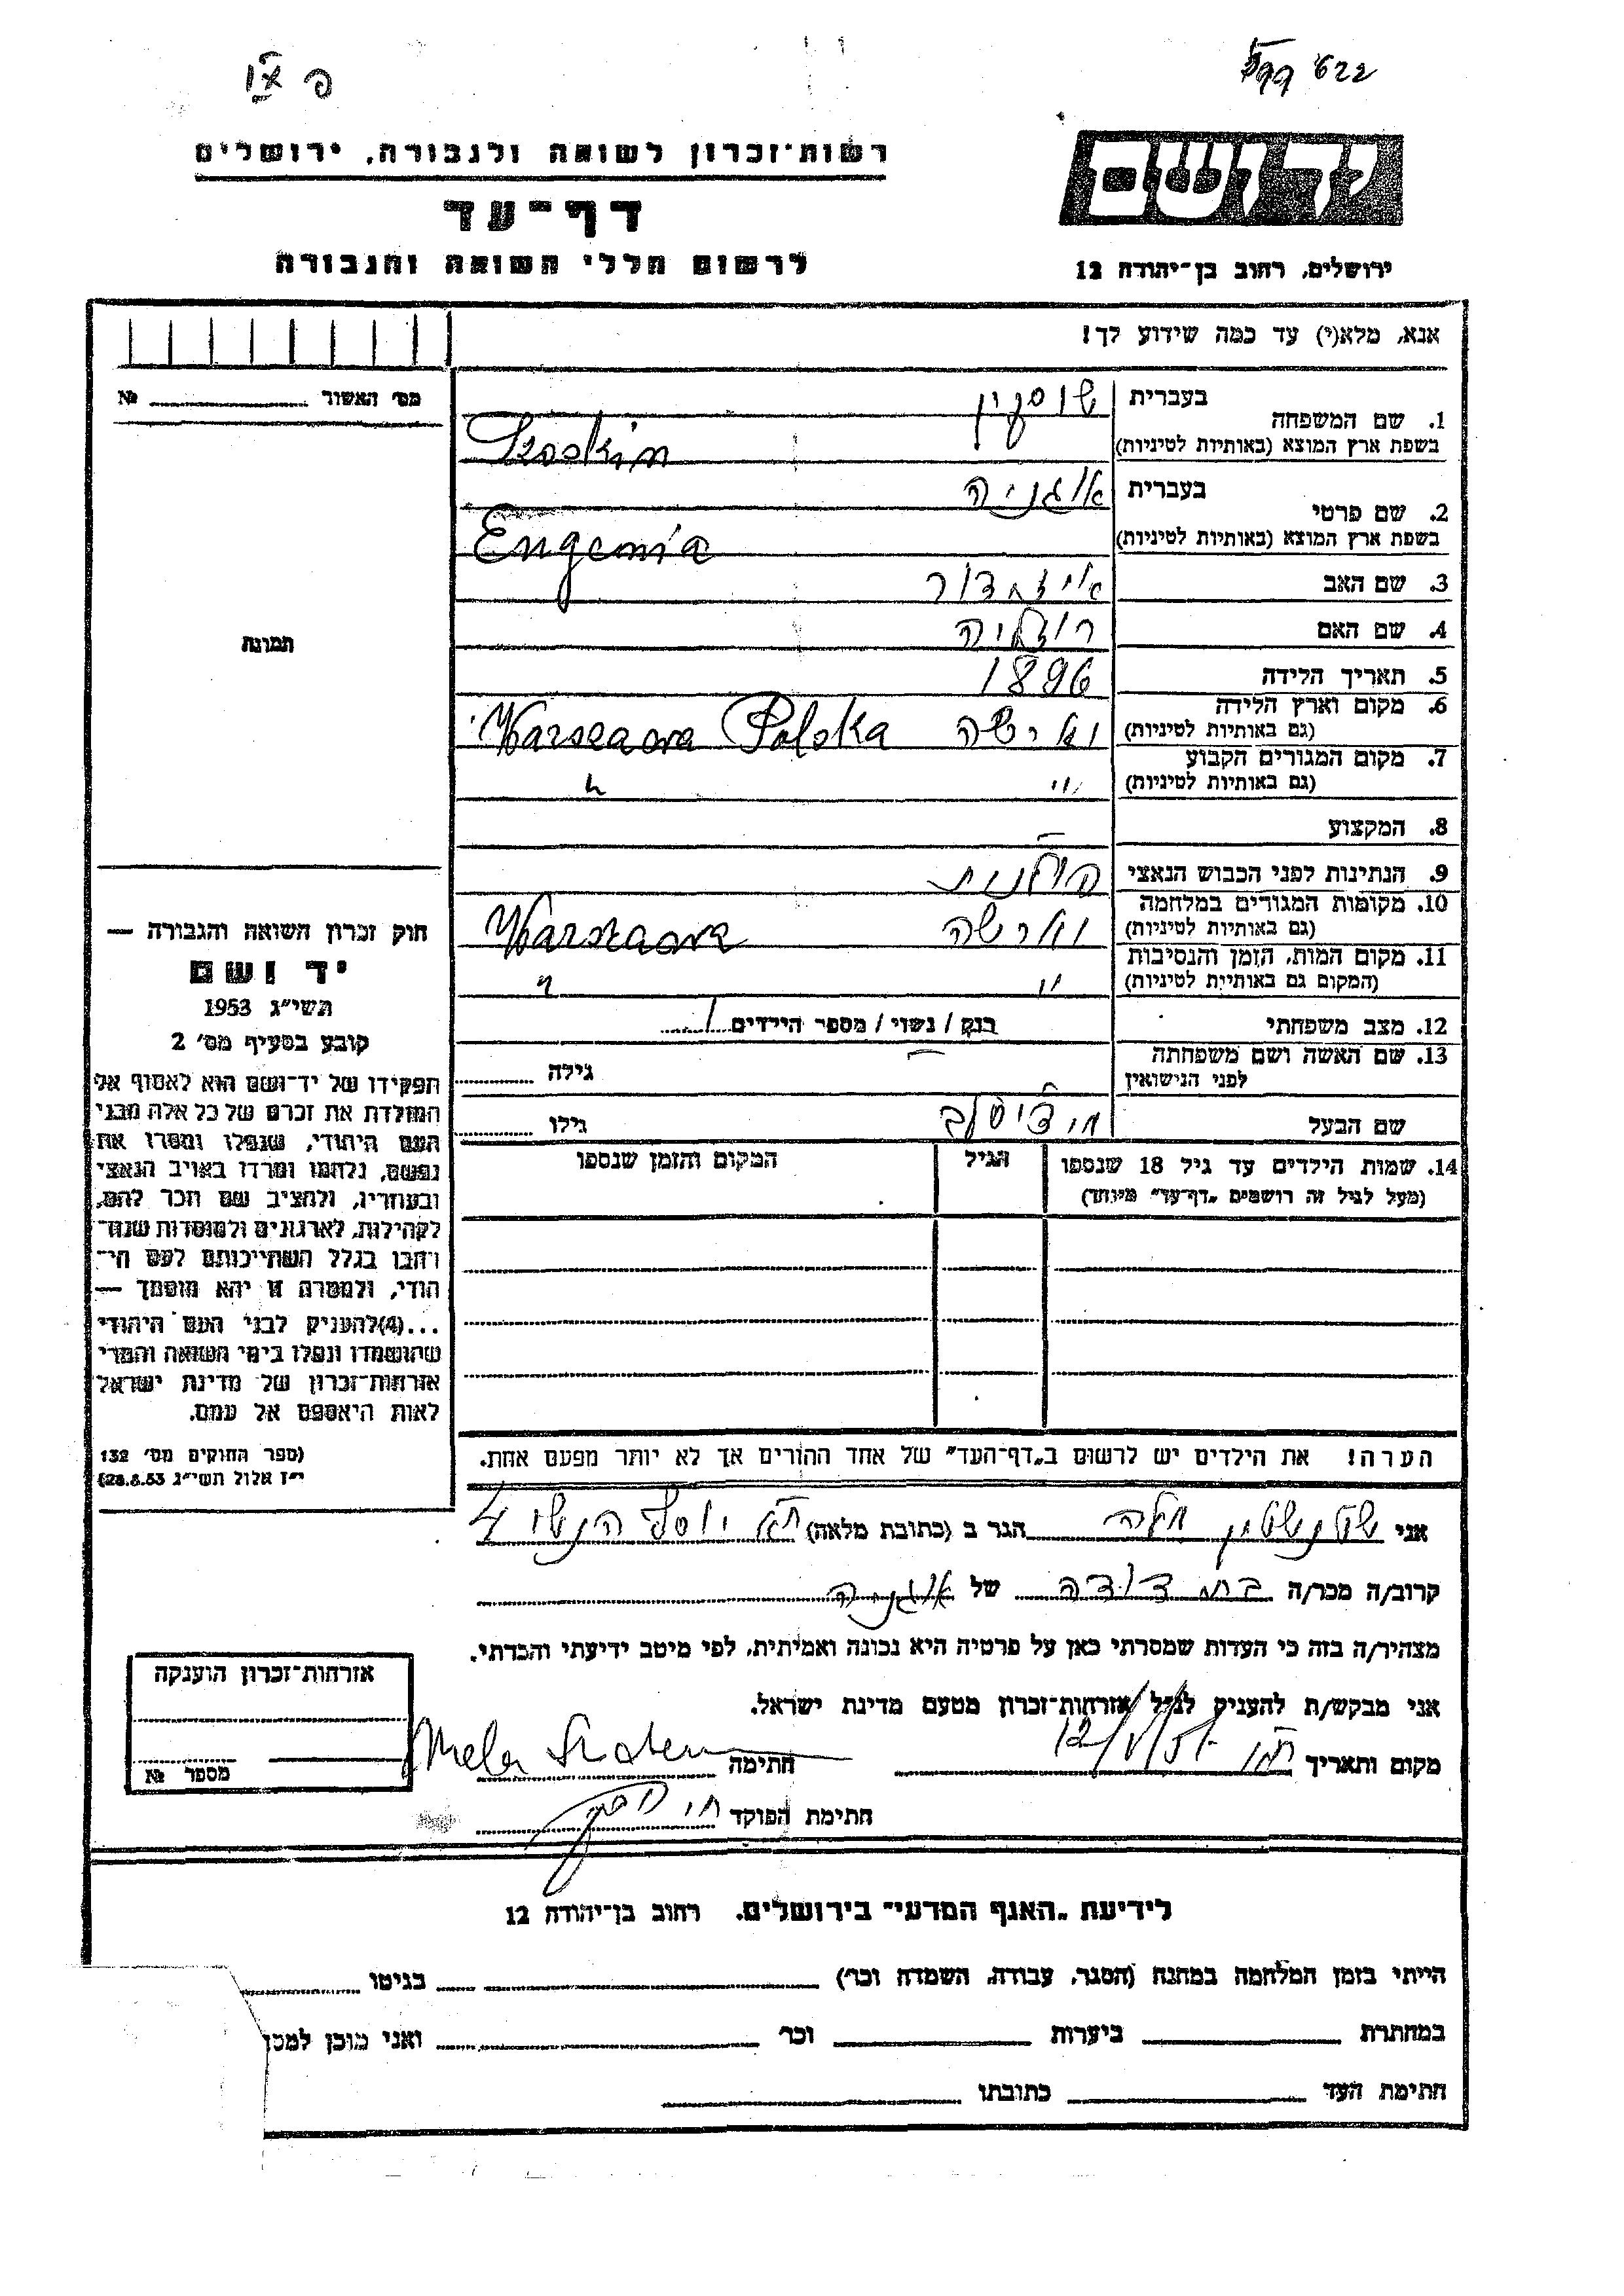 רשות-זכרון לשואה ולגבורה, ירושלים
דף-עד
לרשום חללי השואה והגבורה
יד ושם
ירושלים, רחוב בן-יהודה 12
אנא, מלא(י) עד כמה שידוע לך!
מס׳ האשור № 
1. שם המשפחה
בעברית שוסקין
בשפת ארץ המוצא (באותיות לטיניות) Szoskin
2. שם פרטי
בעברית אוגניה
בשפת ארץ המוצא (באותיות לטיניות) Eugenia
3. שם האב איזידור
4. שם האם רוזליה
5. תאריך הלידה 1896
6. מקום וארץ הלידה
(גם באותיות לטיניות) וארשה Warszawa Polska
7. מקום המגורים הקבוע
(גם באותיות לטיניות) " "
8. המקצוע —
9. הנתינות לפני הכבוש הנאצי פולנית
10. מקומות המגורים במלחמה
(גם באותיות לטיניות) וארשה Warszawa
11. מקום המות, הזמן והנסיבות
(המקום גם באותיות לטיניות) " "
12. מצב משפחתי רווק / נשוי / מספר הילדים 1
13. שם האשה ושם משפחתה
לפני הנישואין — גילה
שם הבעל גילו
14. שמות הילדים עד גיל 18 שנספו
(מעל לגיל זה רושמים „דף-עד" מיוחד)
הגיל
המקום והזמן שנספו
הערה! את הילדים יש לרשום ב„דף-העד" של אחד ההורים אך לא יותר מפעם אחת.
תמונה
חוק זכרון השואה והגבורה —
יד ושם
תשי״ג 1953
קובע בסעיף מס׳ 2
תפקידו של יד-ושם הוא לאסוף אל
המולדת את זכרם של כל אלה מבני
העם היהודי, שנפלו ומסרו את
נפשם, נלחמו ומרדו באויב הנאצי
ובעוזריו, ולהציב שם וזכר להם,
לקהילות, לארגונים ולמוסדות שנח-
רבו בגלל השתייכותם לעם הי-
הודי, ולמטרה זו יהא מוסמך —
...(4)להעניק לבני העם היהודי
שהושמדו ונפלו בימי השואה והמרי
אזרחות-זכרון של מדינת ישראל
לאות היאספם אל עמם.
(ספר החוקים מס׳ 132
י״ז אלול תשי״ג 28.8.53)
אני הגר ב (כתובת מלאה) ת״א יוסף הנשיא 4
קרוב/ה מכר/ה בת דודה של אוגניה
מצהיר/ה בזה כי העדות שמסרתי כאן על פרטיה היא נכונה ואמיתית, לפי מיטב ידיעתי והכרתי.
אני מבקש/ת להעניק לנ״ל אזרחות-זכרון מטעם מדינת ישראל.
מקום ותאריך חתימה
חתימת הפוקד
אזרחות-זכרון הוענקה
מספר №
לידיעת „האגף המדעי" בירושלים, רחוב בן-יהודה 12
הייתי בזמן המלחמה במחנה (הסגר, עבודה, השמדה וכו׳) בגיטו
במחתרת ביערות וכו׳ ואני מוכן למס
חתימת העד כתובתו